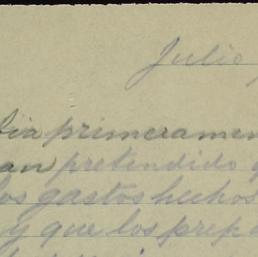 Julio
día primeramen
an pretendido q
los gastos hechos
y que los prepa